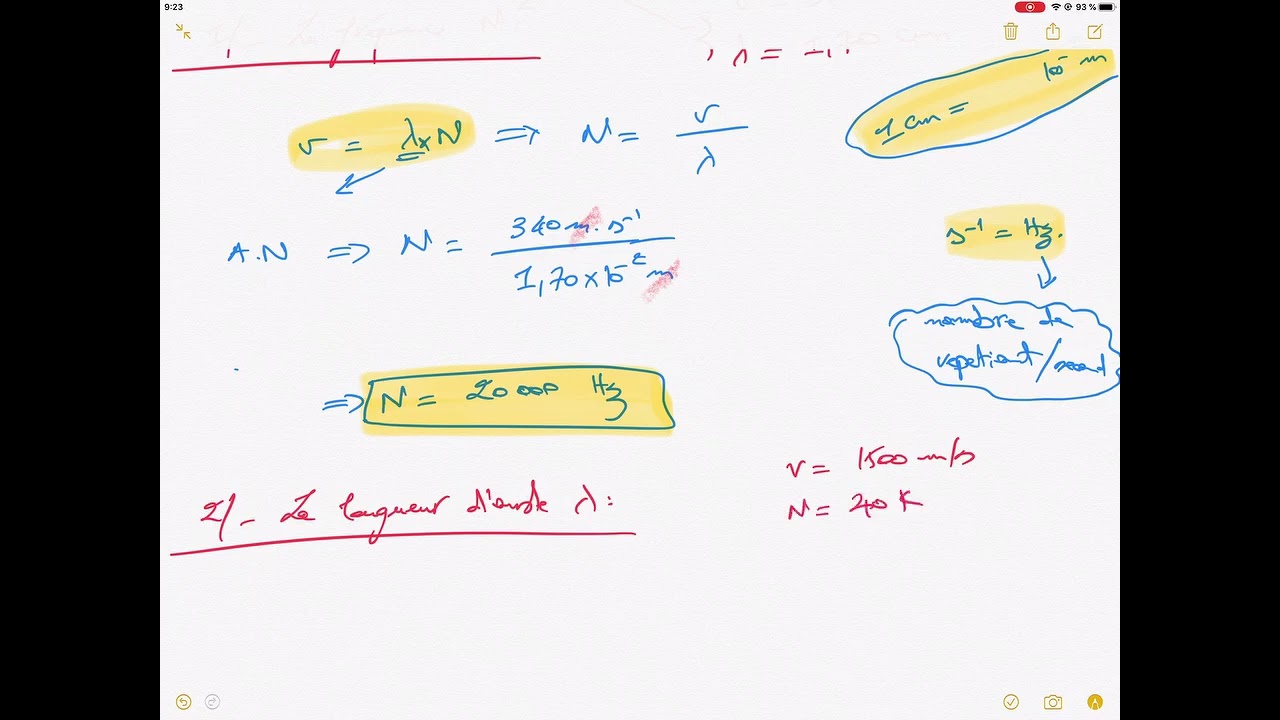 9:23
93 %
v = λ×N ⟹ N = v/λ
1 cm = 10⁻ m
A.N ⟹ N = 340 m.s⁻¹ / 1,70×10⁻² m
s⁻¹ = Hz.
nombre de
repetiont/second
⟹ N = 20 000 Hz
v = 1500 m/s
2/- La longueur d'onde λ:
N = 40 K